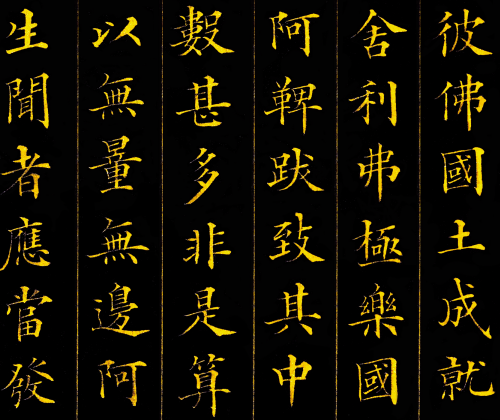 彼佛國土成就
舍利弗極樂國
阿鞞跋致其中
數甚多非是算
以無量無邊阿
生聞者應當發